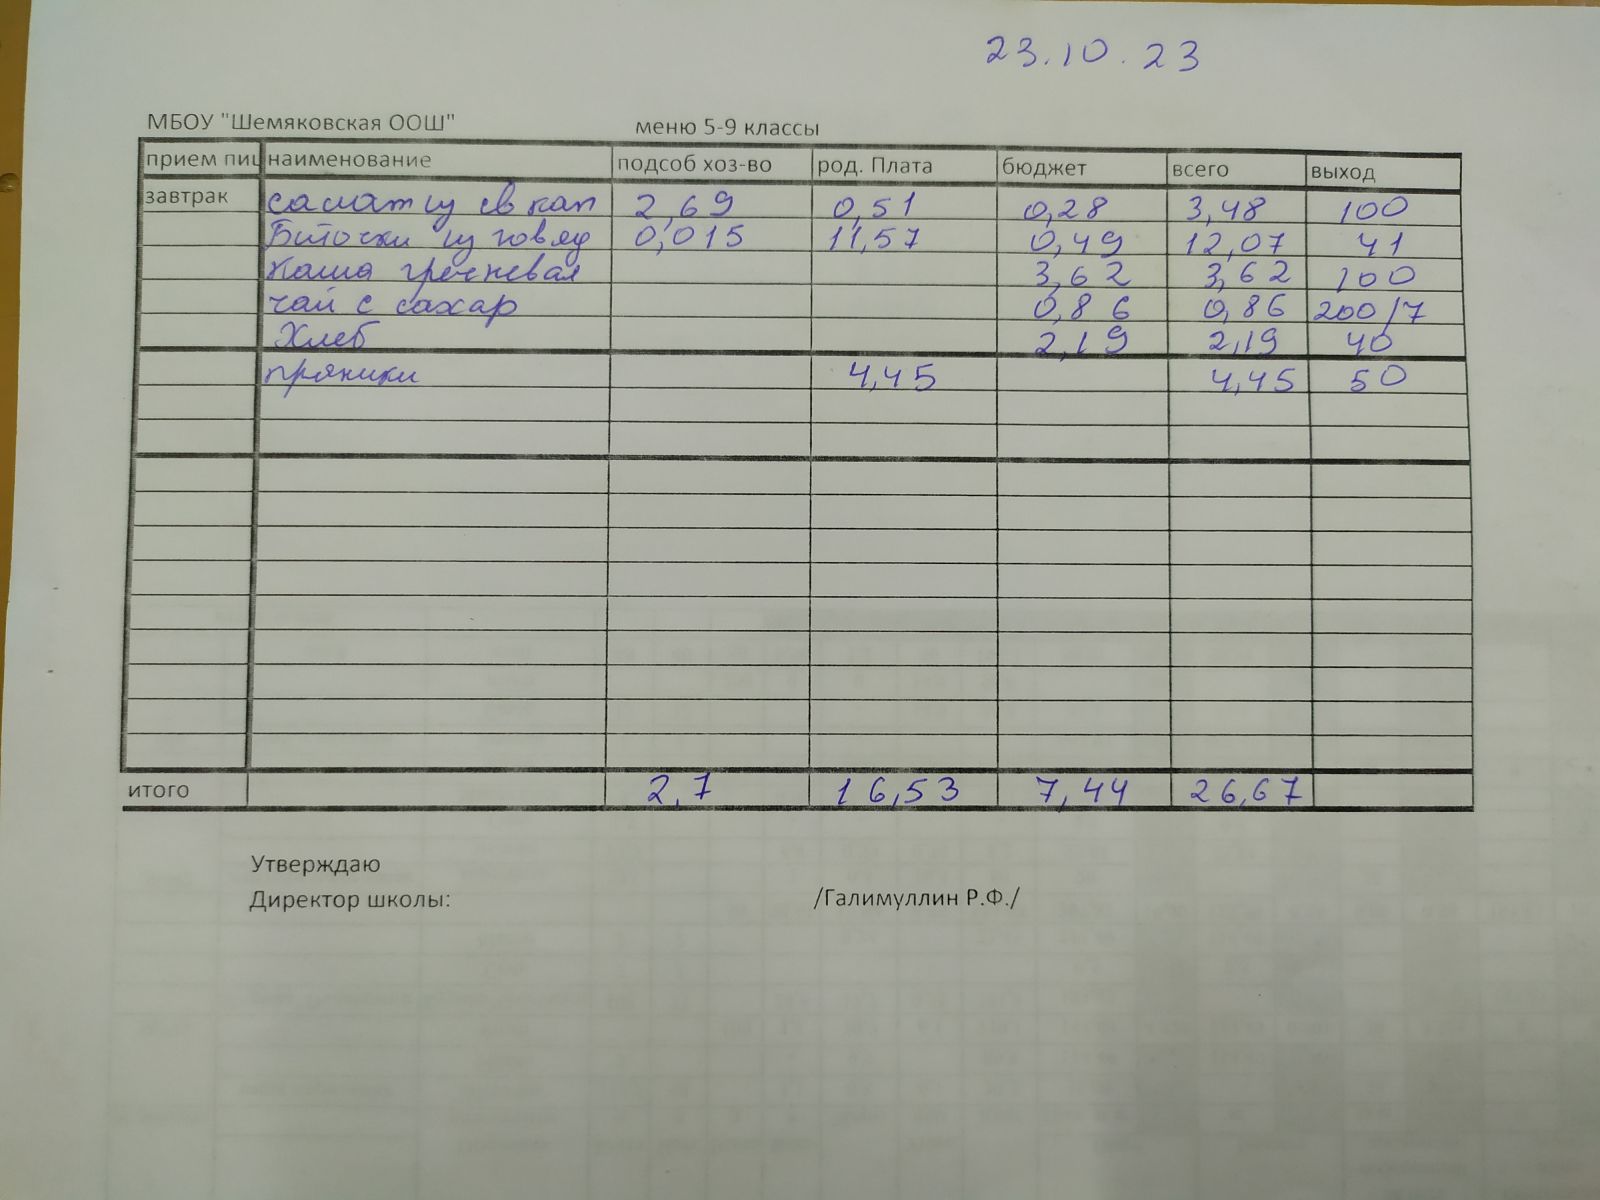 23.10.23
МБОУ "Шемяковская ООШ" меню 5-9 классы
прием пищ наименование подсоб хоз-во род. Плата бюджет всего выход
завтрак салат из св кап 2,69 0,51 0,28 3,48 100
Биточки из говяд 0,015 11,57 0,49 12,07 41
Каша гречневая 3,62 3,62 100
чай с сахар 0,86 0,86 200/7
Хлеб 2,19 2,19 40
пряники 4,45 4,45 50
итого 2,7 16,53 7,44 26,67
Утверждаю
Директор школы: /Галимуллин Р.Ф./